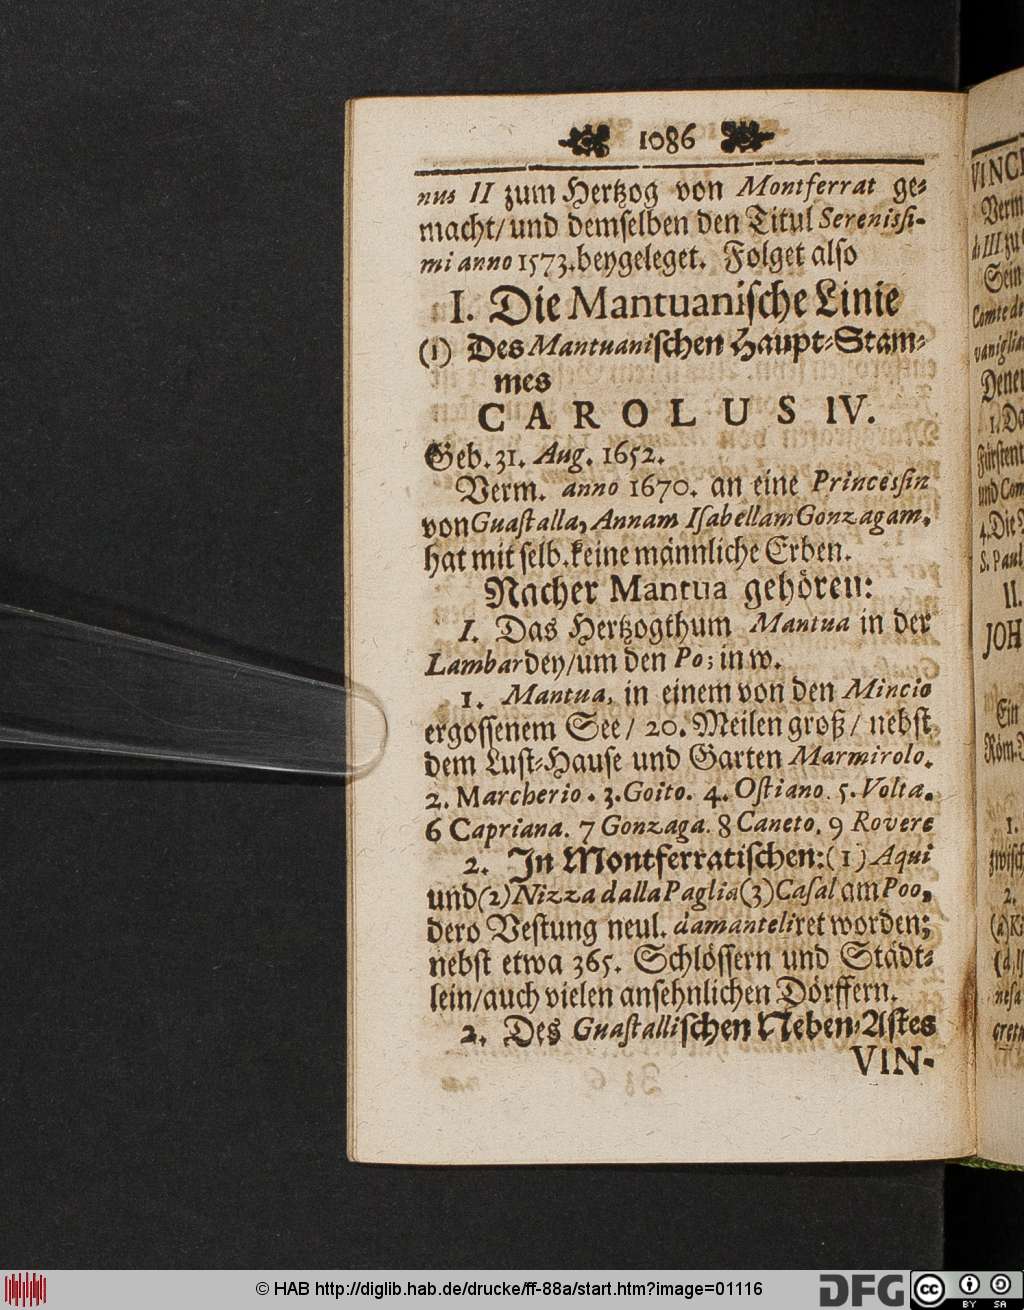 1086
nus II zum Hertzog von Montferrat ge⸗
macht/ und demselben den Titul Serenissi-
mi anno 1573. beygeleget. Folget also
I. Die Mantuanische Linie
(1) Des Mantuanischen Haupt⸗Stam⸗
mes
CAROLUS IV.
Geb. 31. Aug. 1652.
Verm. anno 1670. an eine Princessin
von Guastalla, Annam Isabellam Gonzagam,
hat mit selb. keine männliche Erben.
Nacher Mantua gehören:
I. Das Hertzogthum Mantua in der
Lambardey/ um den Po; in w.
1. Mantua, in einem von den Mincio
ergossenem See/ 20. Meilen groß/ nebst
dem Lust⸗Hause und Garten Marmirolo.
2. Marcherio. 3. Goito. 4. Ostiano. 5. Volta.
6 Capriana. 7 Gonzaga. 8 Caneto. 9 Rovere
2. In Montferratischen: (1) Aqui
und (2) Nizza dalla Paglia (3) Casal am Poo,
dero Vestung neul. damanteliret worden;
nebst etwa 365. Schlössern und Städt⸗
lein/ auch vielen ansehnlichen Dörffern.
2. Des Guastallischen Neben⸗Astes
VIN-
© HAB http://diglib.hab.de/drucke/ff-88a/start.htm?image=01116
DFG
cc BY SA